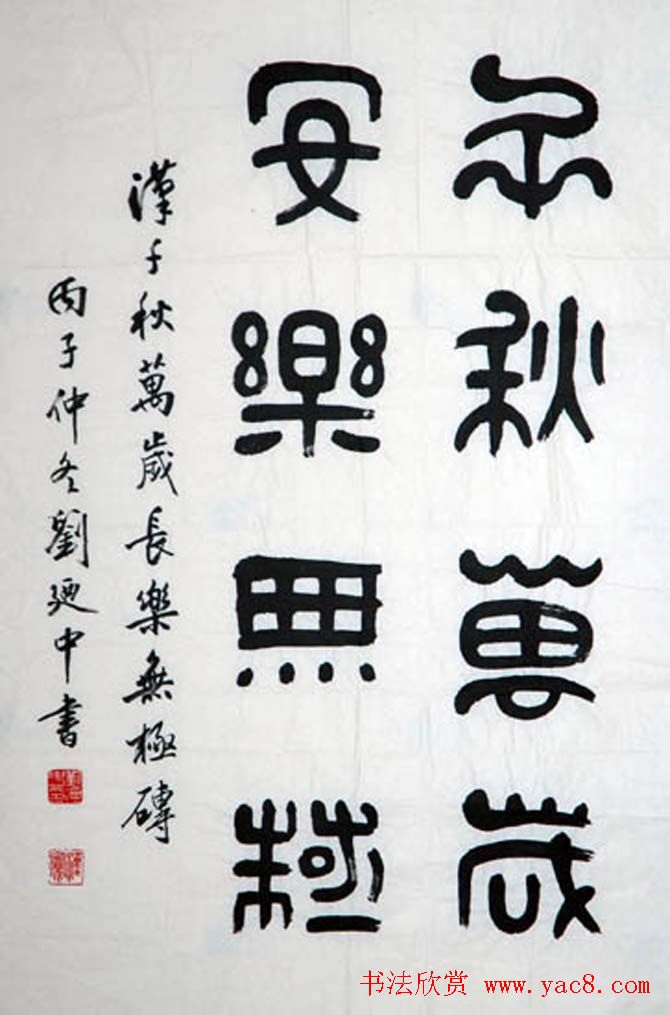 千秋萬歲
安樂無極
漢千秋萬歲長樂無極磚
丙子仲冬劉廼中書
书法欣赏 www.yac8.com